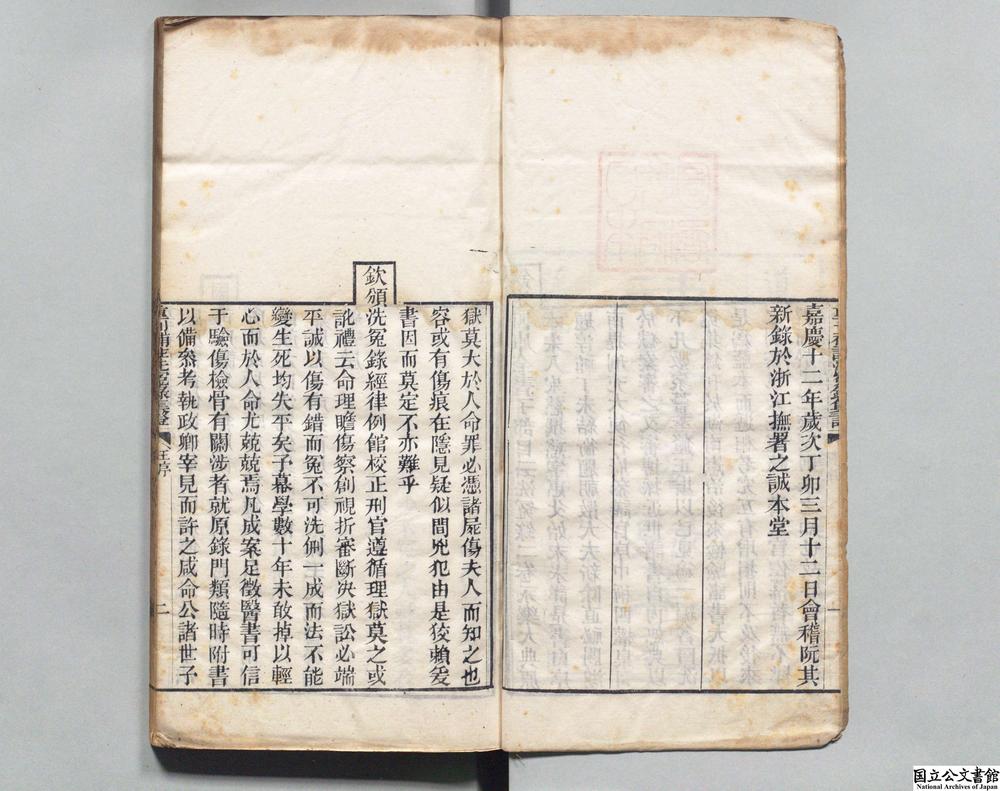 嘉慶十二年歲次丁卯三月十二日會稽阮其
新錄於浙江撫署之誠本堂
一
獄莫大於人命罪必憑諸屍傷夫人而知之也
容或有傷痕在隱見疑似間兇犯由是狡賴爰
書因而莫定不亦難乎
欽頒洗冤錄經律例館校正刑官遵循理獄莫之或
訛禮云命理瞻傷察創視折審斷決獄訟必端
平誠以傷有錯而冤不可洗侀一成而法不能
變生死均失平矣予幕學數十年未敢掉以輕
心而於人命尤兢兢焉凡成案足徵醫書可信
于驗傷檢骨有關涉者就原錄門類隨時附書
以備參考執政鄉宰見而許之咸命公諸世子
二
国立公文書館
National Archives of Japan